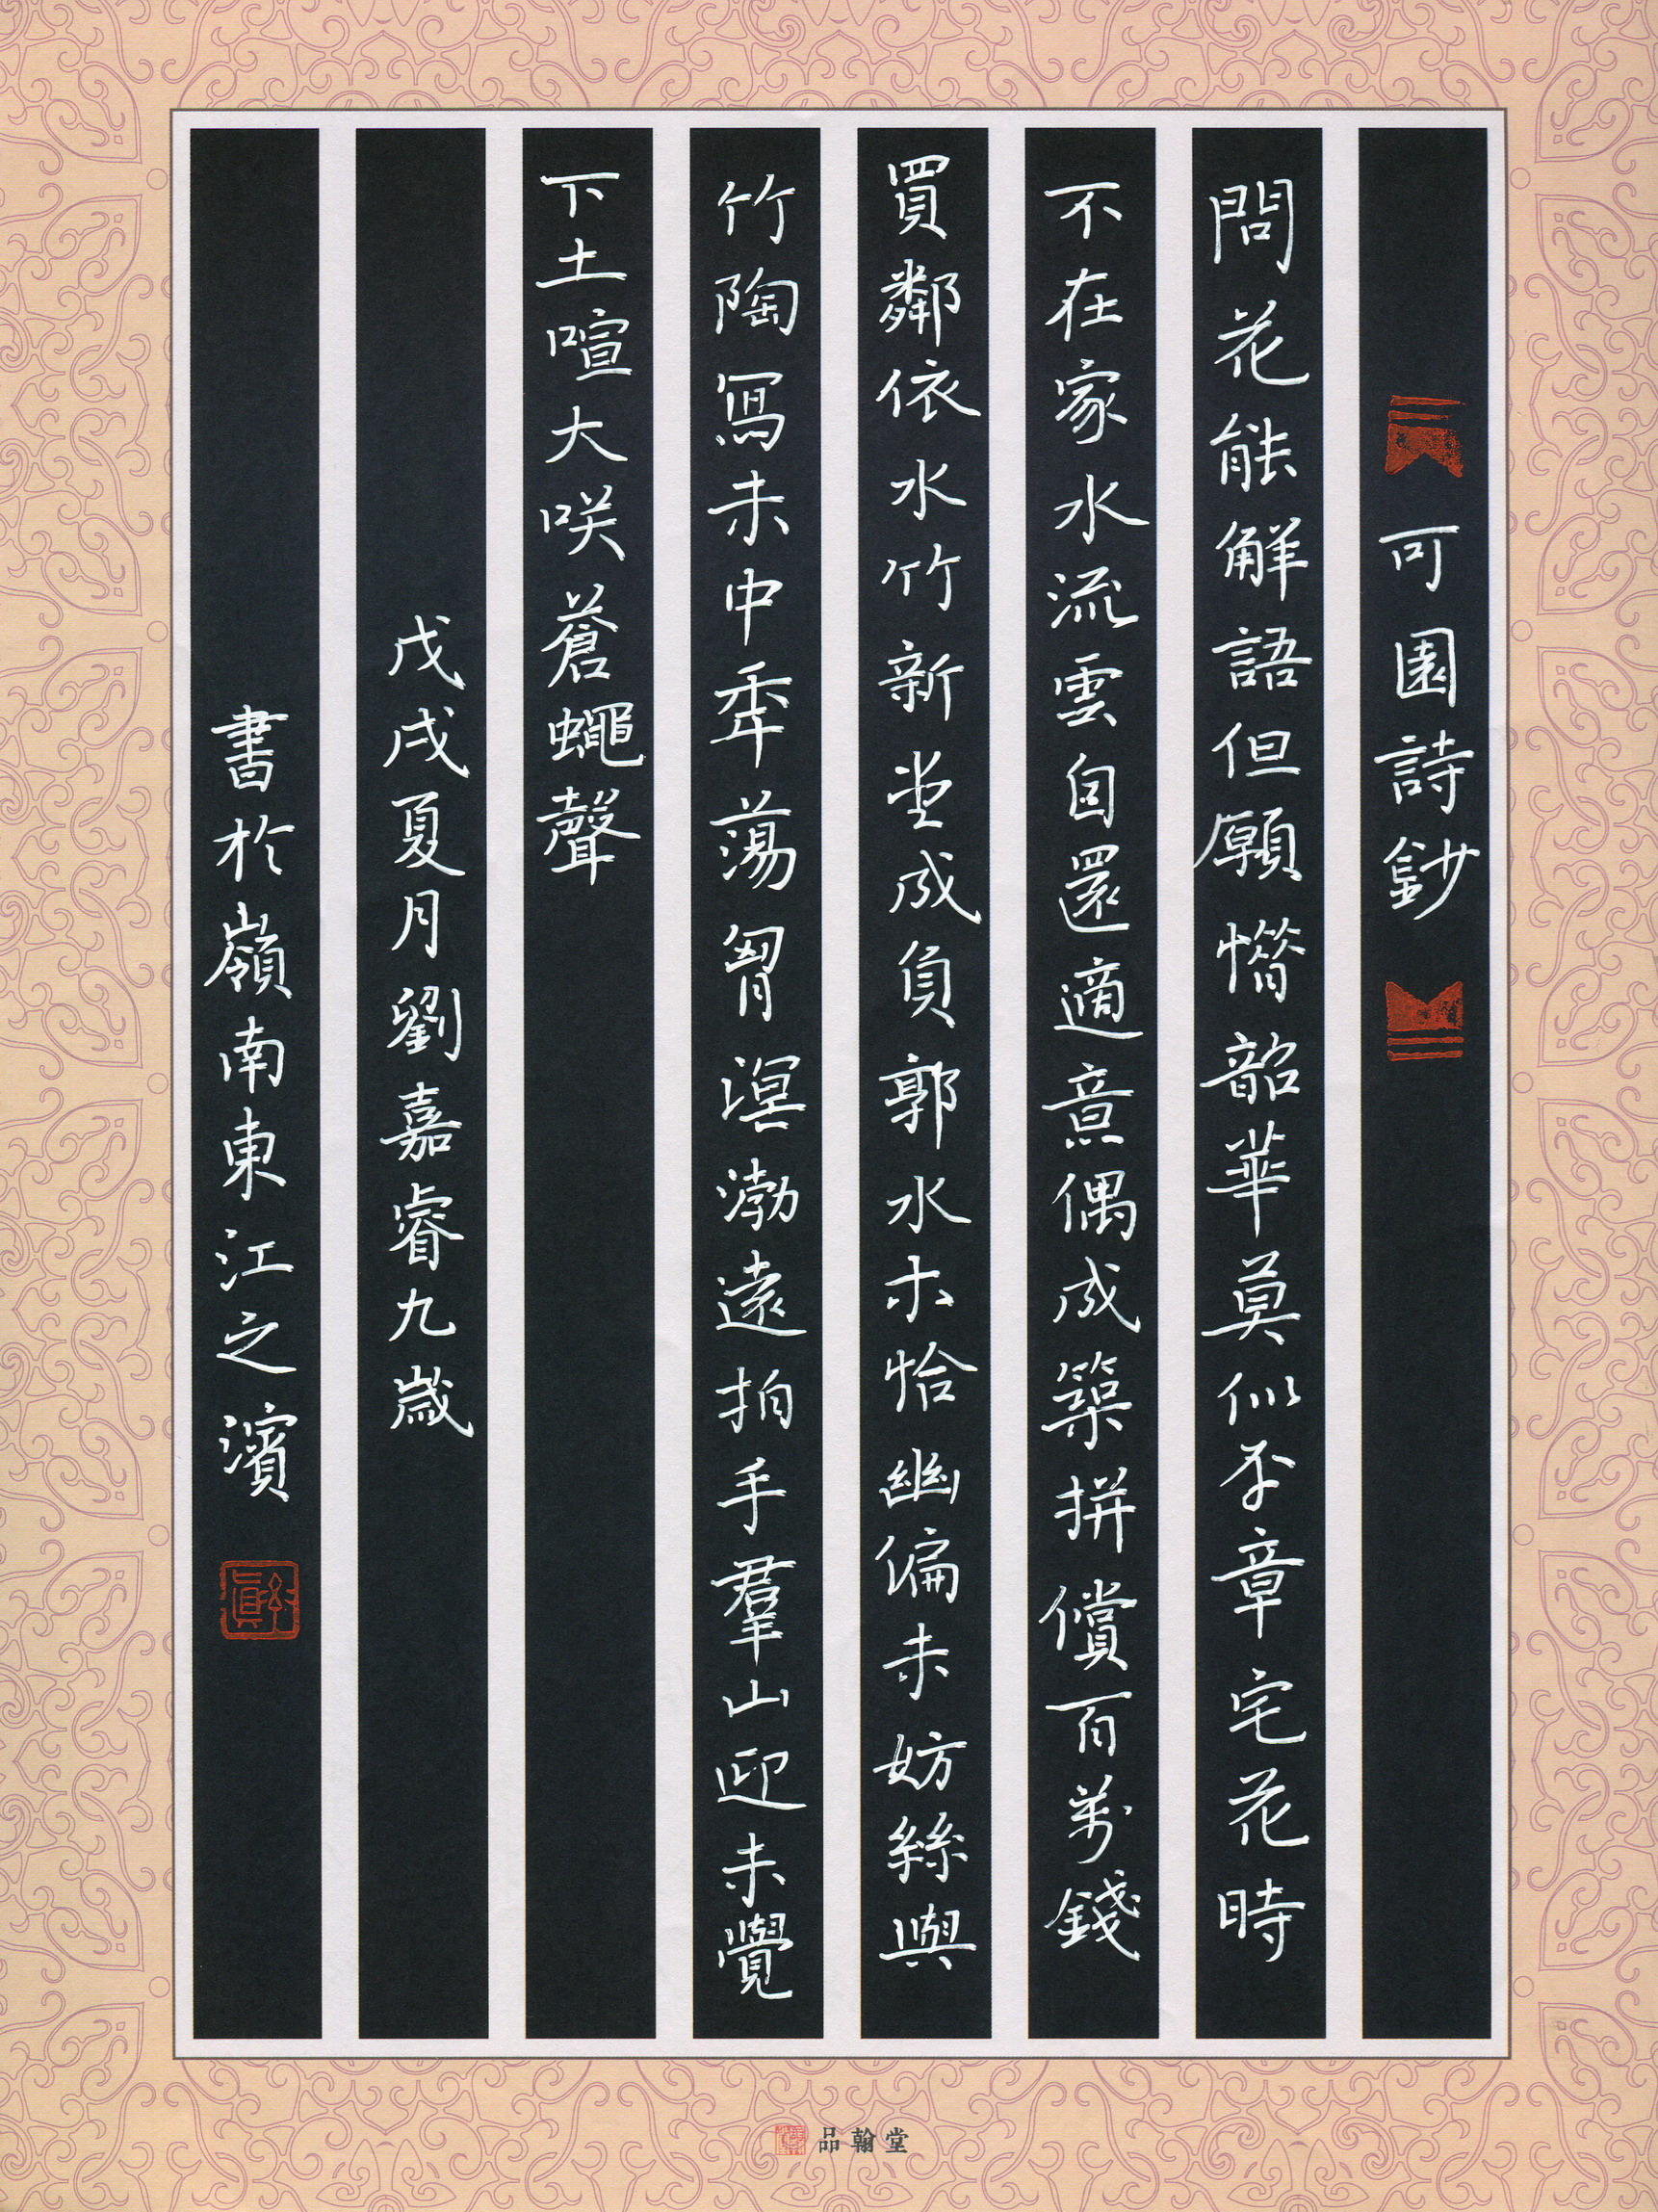 可園詩鈔
問花能解語但願惜韶華莫似平章宅花時
不在家水流雲自還適意偶成築拼償百萬錢
買鄰依水竹新堂成負郭水木恰幽偏未妨絲與
竹陶寫未中年蕩胷溟渤遠拍手羣山迎未覺
下土喧大咲蒼蠅聲
戊戌夏月劉嘉睿九歲
書於嶺南東江之濱
品翰堂